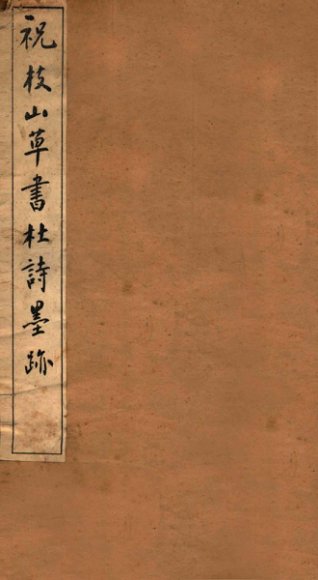 祝枝山草書杜詩墨跡